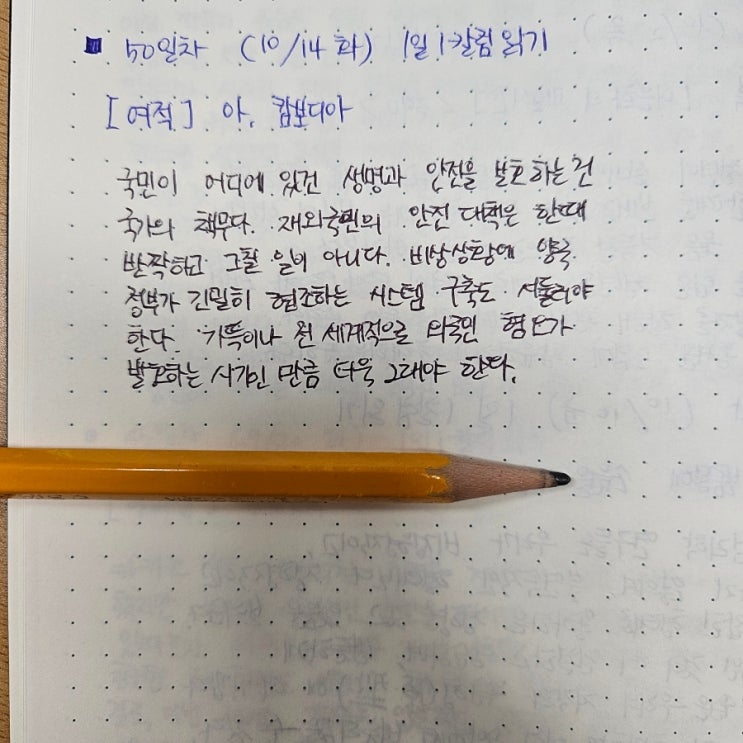 ■ 50일차 (10/14 화) 1일 1칼럼 읽기
[여적] 아, 캄보디아
국민이 어디에 있건 생명과 안전을 보호하는 건
국가의 책무다. 재외국민의 안전 대책은 한때
반짝하고 그칠 일이 아니다. 비상상황에 양국
정부가 긴밀히 협조하는 시스템 구축도 서둘러야
한다. 가뜩이나 전 세계적으로 외국인 혐오가
발호하는 시기인 만큼 더욱 그래야 한다.